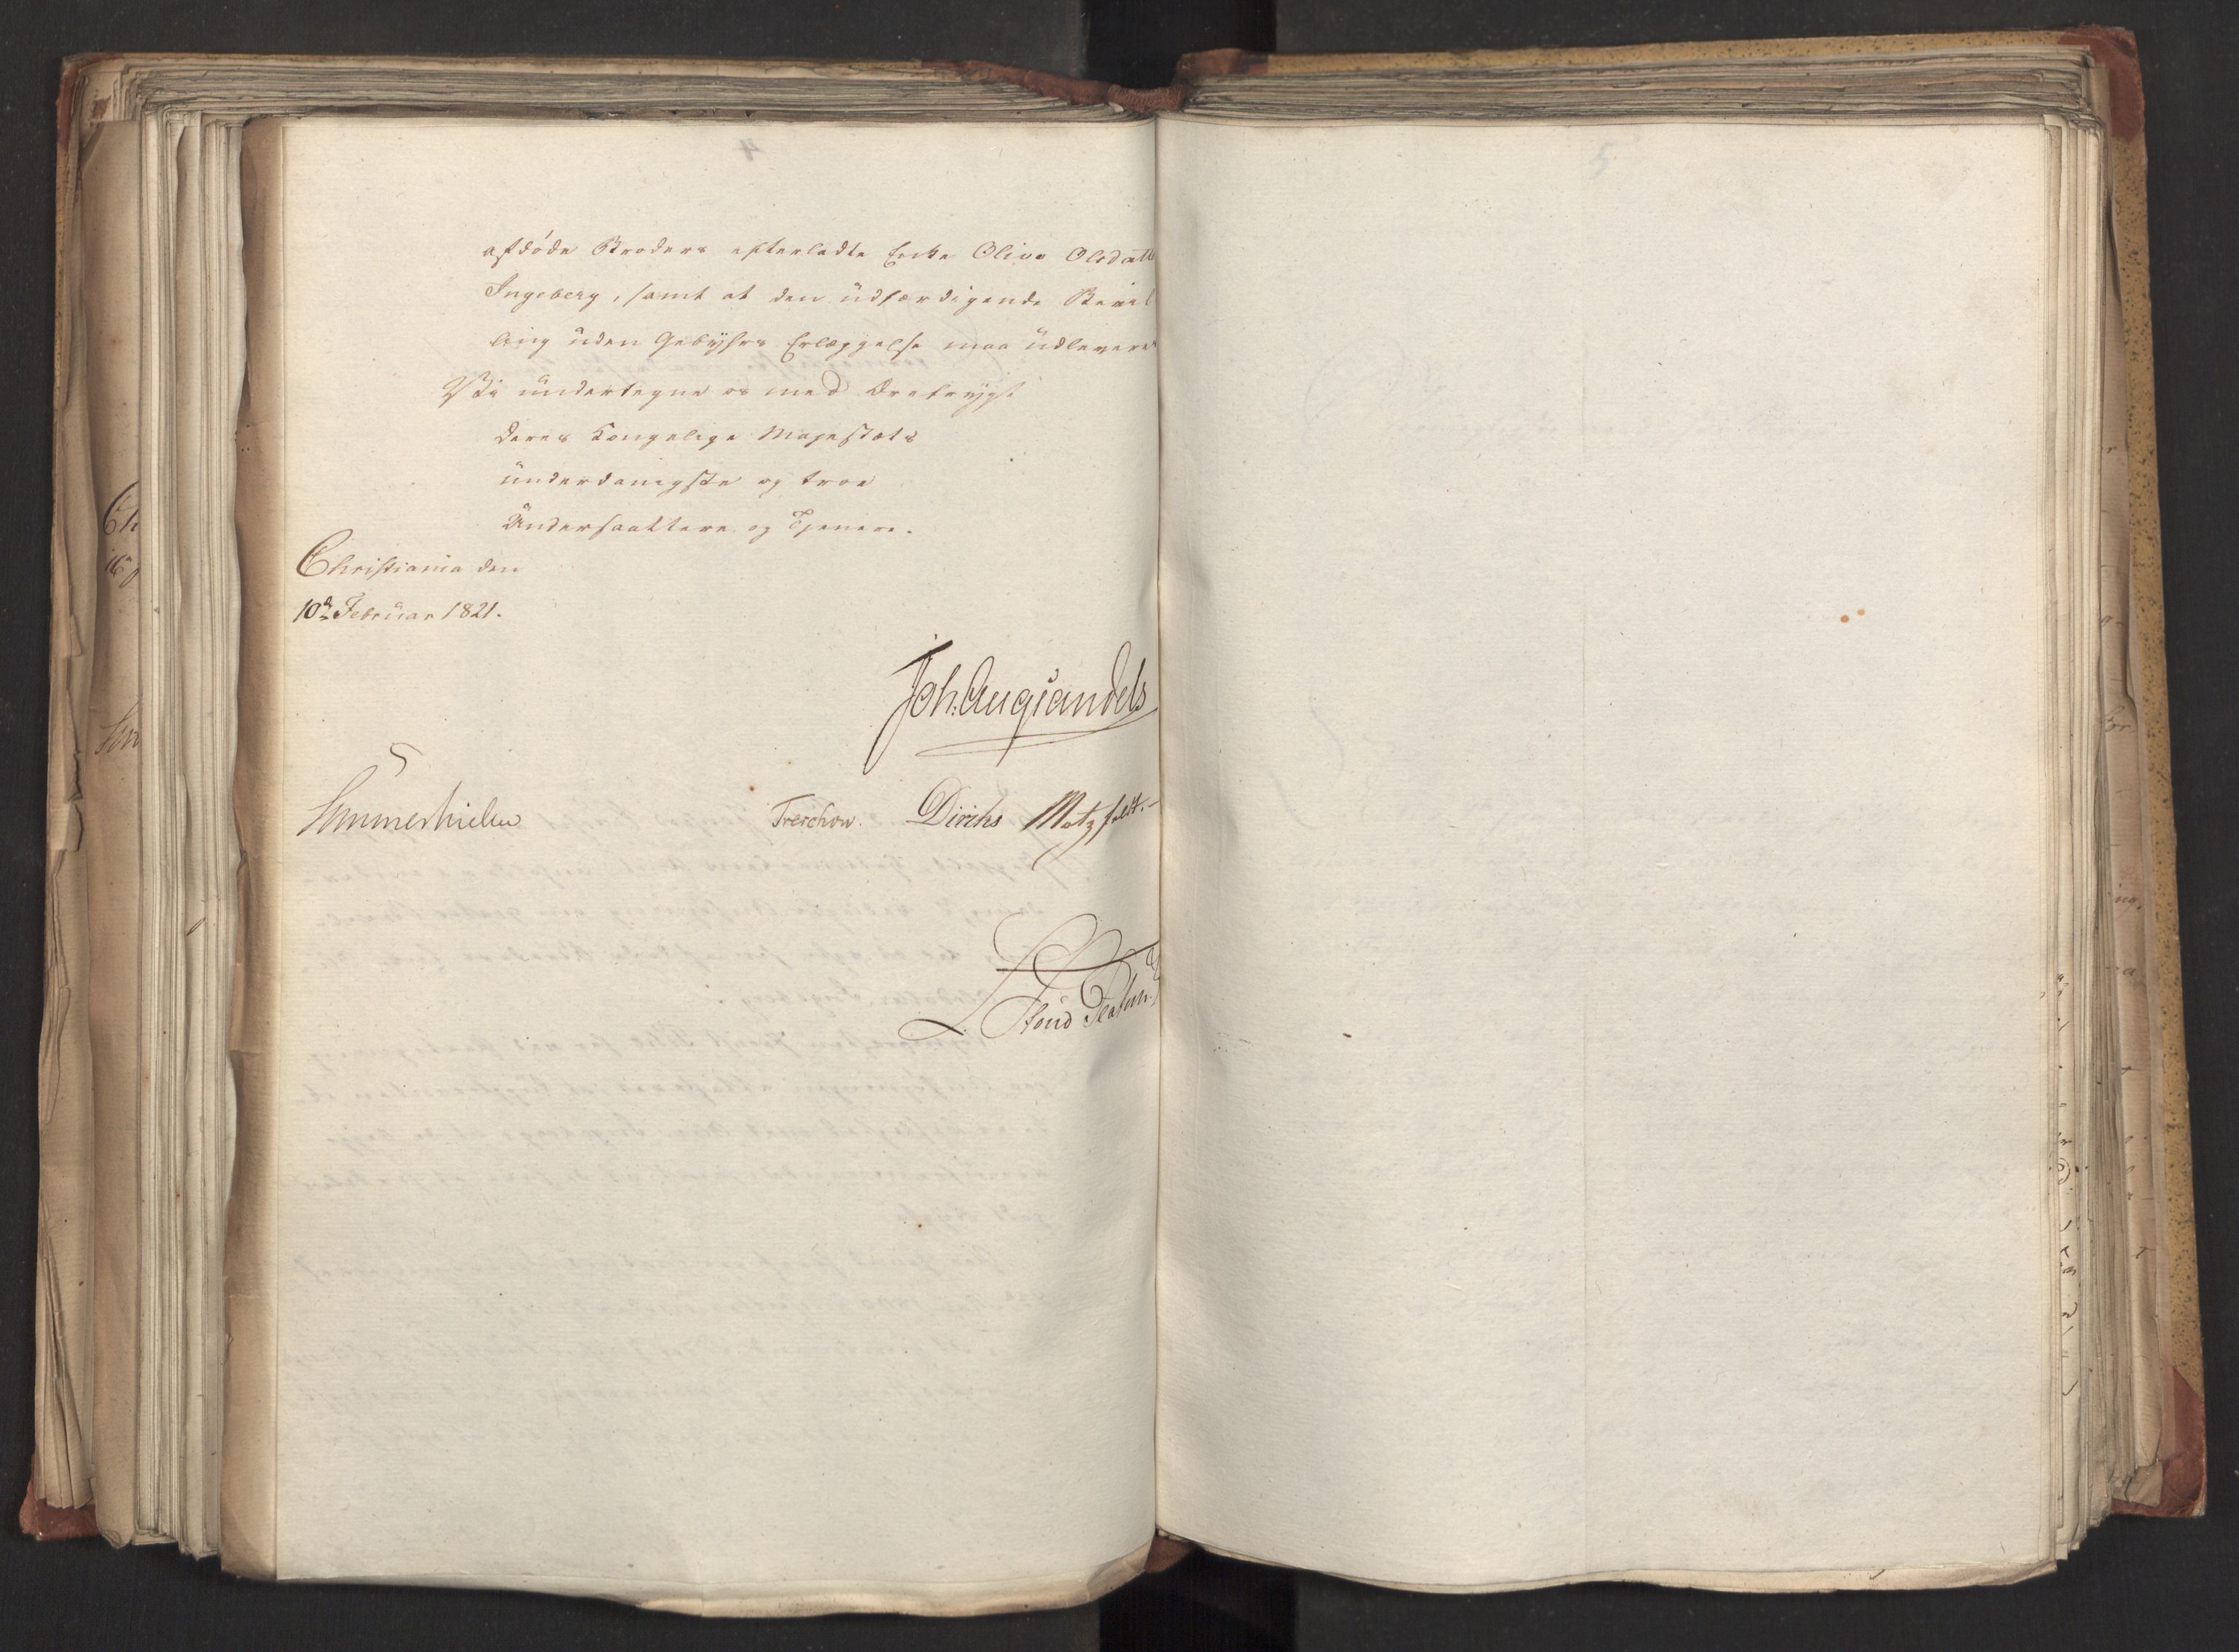 afdøde Broders efterladte Enke Olive Olsdatt
Ingeberg, samt at den udfærdigende Bevil
ling uden Gebyhrs Erlæggelse maa udlevere
Vi undertegne os med Ærefrygt
Deres Kongelige Majestæts
underdanigste og troe
Undersaattere og Tjenere.
Christiania den
10de Februar 1821.
Joh: Aug: Sandels
Sommerhielm Treschow. Diriks Motzfeldt.